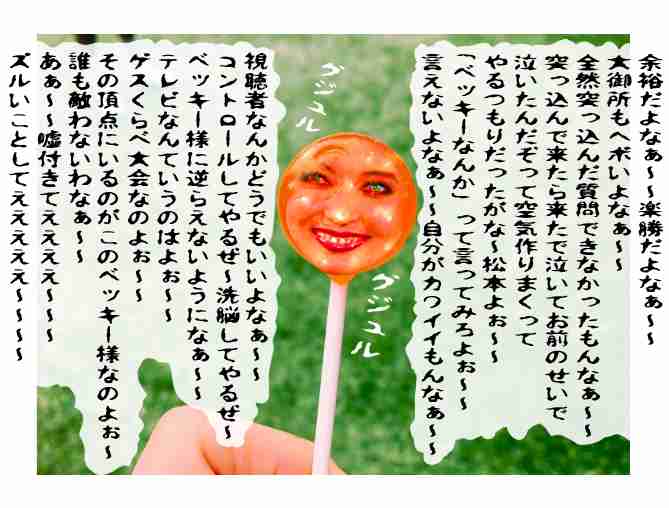 余裕だよなぁ～～楽勝だよなぁ～～
大御所もヘボいよなぁ～～
全然突っ込んだ質問できなかったもんなぁ～～
突っ込んで来たら来たで泣いてお前のせいで
泣いたんだぞって空気作りまくって
やるつもりだったがな～松本よぉ～～
「ベッキーなんか」って言ってみろよぉ～～
言えないよなぁ～～自分がカワイイもんなぁ～～
グジュル
グジュル
視聴者なんかどうでもいいよなぁ～～
コントロールしてやるぜ～洗脳してやるぜ～
ベッキー様に逆らえないようになぁ～～
テレビなんていうのはよぉ～～
ゲスくらべ大会なのよぉ～～
その頂点にいるのがこのベッキー様なのよぉ～
誰も敵わないわなぁ～～
あぁ～～嘘付きてええええ～～～
ズルいことしてえええええ～～～～